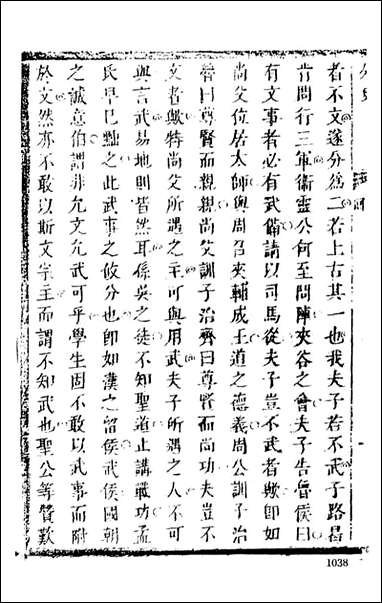 者不文遂分為二若上古其一也我夫子若不武子路曷
肯問行三軍衛靈公何至問陣夾谷之會夫子告魯侯曰
有文事者必有武備請以司馬從夫子豈不武者歟即如
尚父位居太師與周召夾輔成王道之德義周公訓子治
魯曰尊賢而親親尚父訓子治齊曰尊賢而尚功夫豈不
文者歟特尚父所遇之主可與用武夫子所遇之人不可
與言武易地則皆然耳孫吳之徒不知聖道止講戰功孟
氏早已黜之此武事之攸分也即如漢之留侯武侯國朝
之誠意伯謂非允文允武可乎學生固不敢以武事而附
於文然亦不敢以斯文宗主而謂不知武也聖公等贊歎
1038